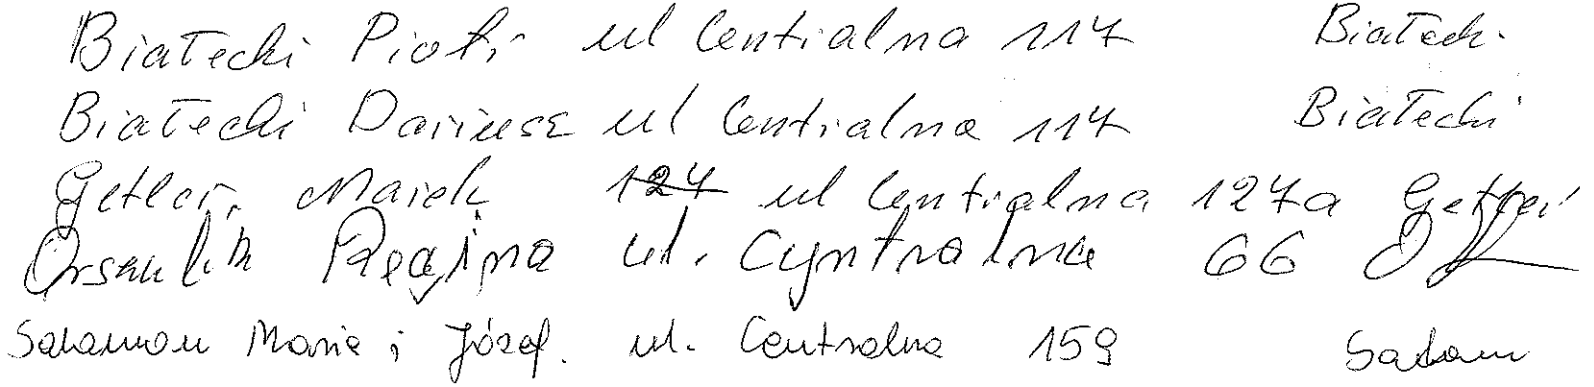 Białecki Piotr ul Centralna 117 Białecki
Białecki Dariusz ul Centralna 117 Białecki
Getler Marek 127 ul Centralna 127a Getler
Orszulik Regina ul. Cyntralna 66
Salamon Maria i Józef. ul. Centralna 159 Salam